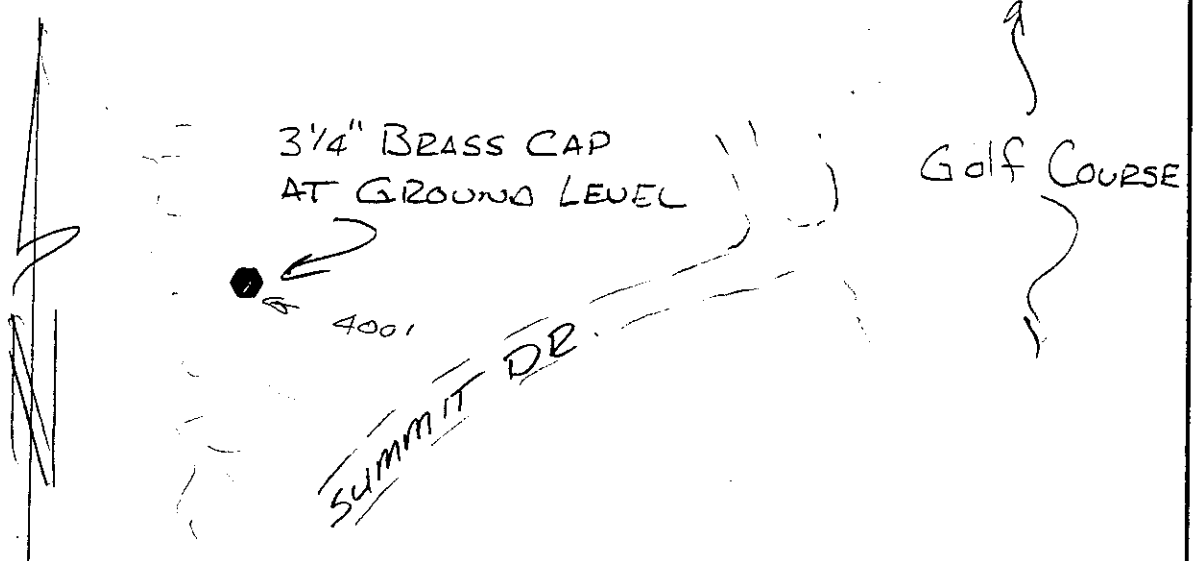 3 1/4" BRASS CAP
AT GROUND LEVEL
Golf COURSE
4001
SUMMIT DR.
N